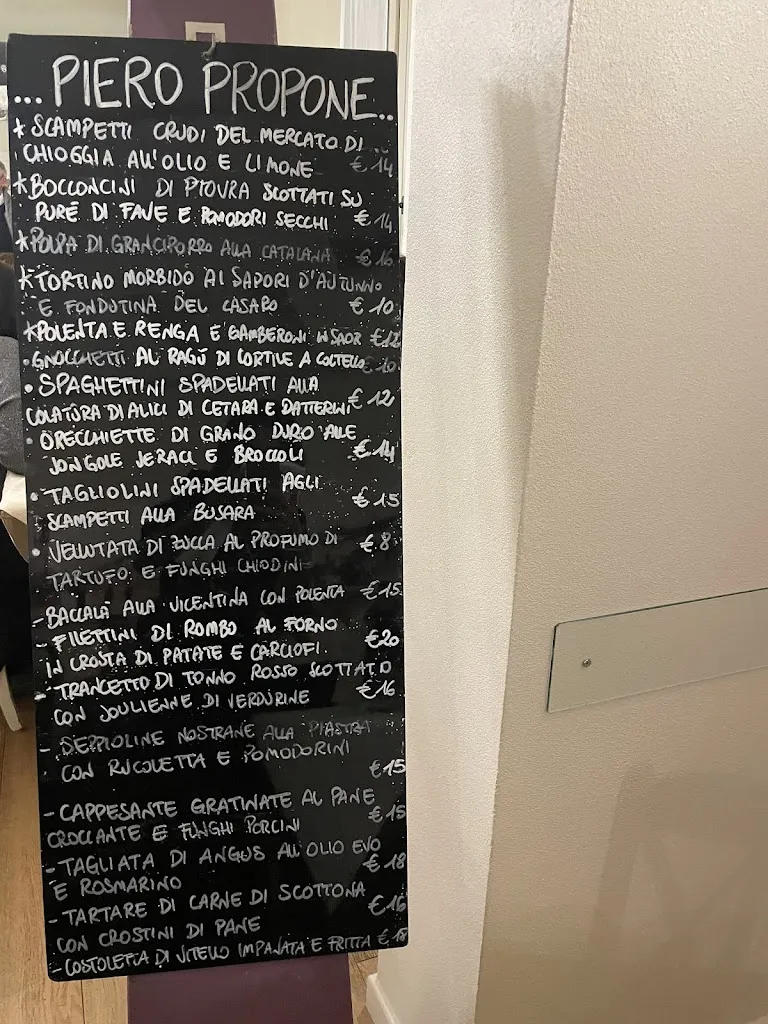 ... PIERO PROPONE..
* SCAMPETTI CRUDI DEL MERCATO DI
CHIOGGIA ALL'OLIO E LIMONE € 14
* BOCCONCINI DI PIOVRA SCOTTATI SU
PURÉ DI FAVE E POMODORI SECCHI € 14
* POLPA DI GRANCIPORRO ALLA CATALANA € 16
* TORTINO MORBIDO AI SAPORI D'AUTUNNO
E FONDUTINA DEL CASARO € 10
* POLENTA E RENGA E GAMBERONI IN SAOR € 12
• GNOCCHETTI AL RAGÙ DI CORTILE A COLTELLO € 10
• SPAGHETTINI SPADELLATI ALLA
COLATURA DI ALICI DI CETARA E DATTERINI € 12
• ORECCHIETTE DI GRANO DURO ALLE
VONGOLE VERACI E BROCCOLI € 14
• TAGLIOLINI SPADELLATI AGLI
SCAMPETTI ALLA BUSARA € 15
• VELLUTATA DI ZUCCA AL PROFUMO DI € 8
TARTUFO E FUNGHI CHIODINI
- BACCALÀ ALLA VICENTINA CON POLENTA € 15
- FILETTINI DI ROMBO AL FORNO
IN CROSTA DI PATATE E CARCIOFI. € 20
- TRANCETTO DI TONNO ROSSO SCOTTATO
CON JOULIENNE DI VERDURINE € 16
- SEPPIOLINE NOSTRANE ALLA PIASTRA
CON RUCOLETTA E POMODORINI € 15
- CAPPESANTE GRATINATE AL PANE
CROCCANTE E FUNGHI PORCINI € 15
- TAGLIATA DI ANGUS ALL'OLIO EVO
E ROSMARINO € 18
- TARTARE DI CARNE DI SCOTTONA
CON CROSTINI DI PANE € 16
- COSTOLETTA DI VITELLO IMPANATA E FRITTA €